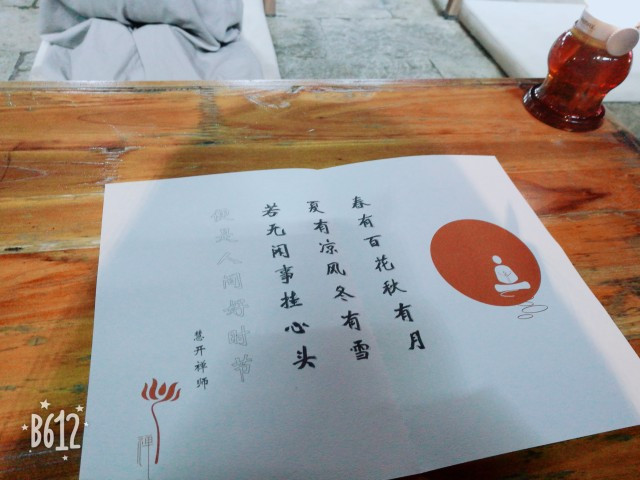 春有百花秋有月
夏有凉风冬有雪
若无闲事挂心头
便是人间好时节
慧开禅师
禅
B612